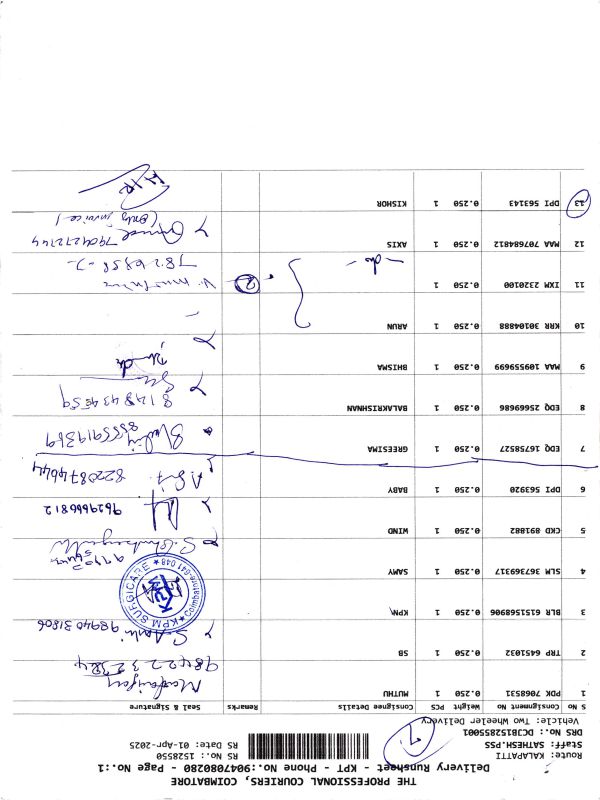 THE PROFESSIONAL COURIERS, COIMBATORE
Delivery Runsheet - KPT - Phone No.:9047080280 - Page No.:1
Route: KALAPATTI
Staff: SATHESH.PSS
DRS No: DCJB1282855001
Vehicle: Two Wheeler Delivery
RS No: 1528550
RS Date: 01-Apr-2025
S No Consignment No Weight PCS Consignee Details Remarks Seal & Signature
1 PDX 7068531 0.250 1 MUTHU
9842232324
2 TRP 6451032 0.250 1 SB
9894031806
3 BLR 6151568906 0.250 1 KPN\
KPM SURGICARE
Coimbatore 641 048
4 SLM 367369317 0.250 1 SAMY
5 CKD 891882 0.250 1 WIND
9629666812
6 DPI 563920 0.250 1 BABY
8220874644
7 EDQ 16758527 0.250 1 GREESIMA
8555919369
8 EDQ 25669686 0.250 1 BALAKRISHNAN
8148434559
9 MAA 109559699 0.250 1 BHISMA
10 KRR 30104888 0.250 1 ARUN
11 IXM 2320100 0.250 1
2
12 MAA 707684812 0.250 1 AXIS
- do -
7904272744
(only invoice)
13 DPI 563143 0.250 1 KISHOR